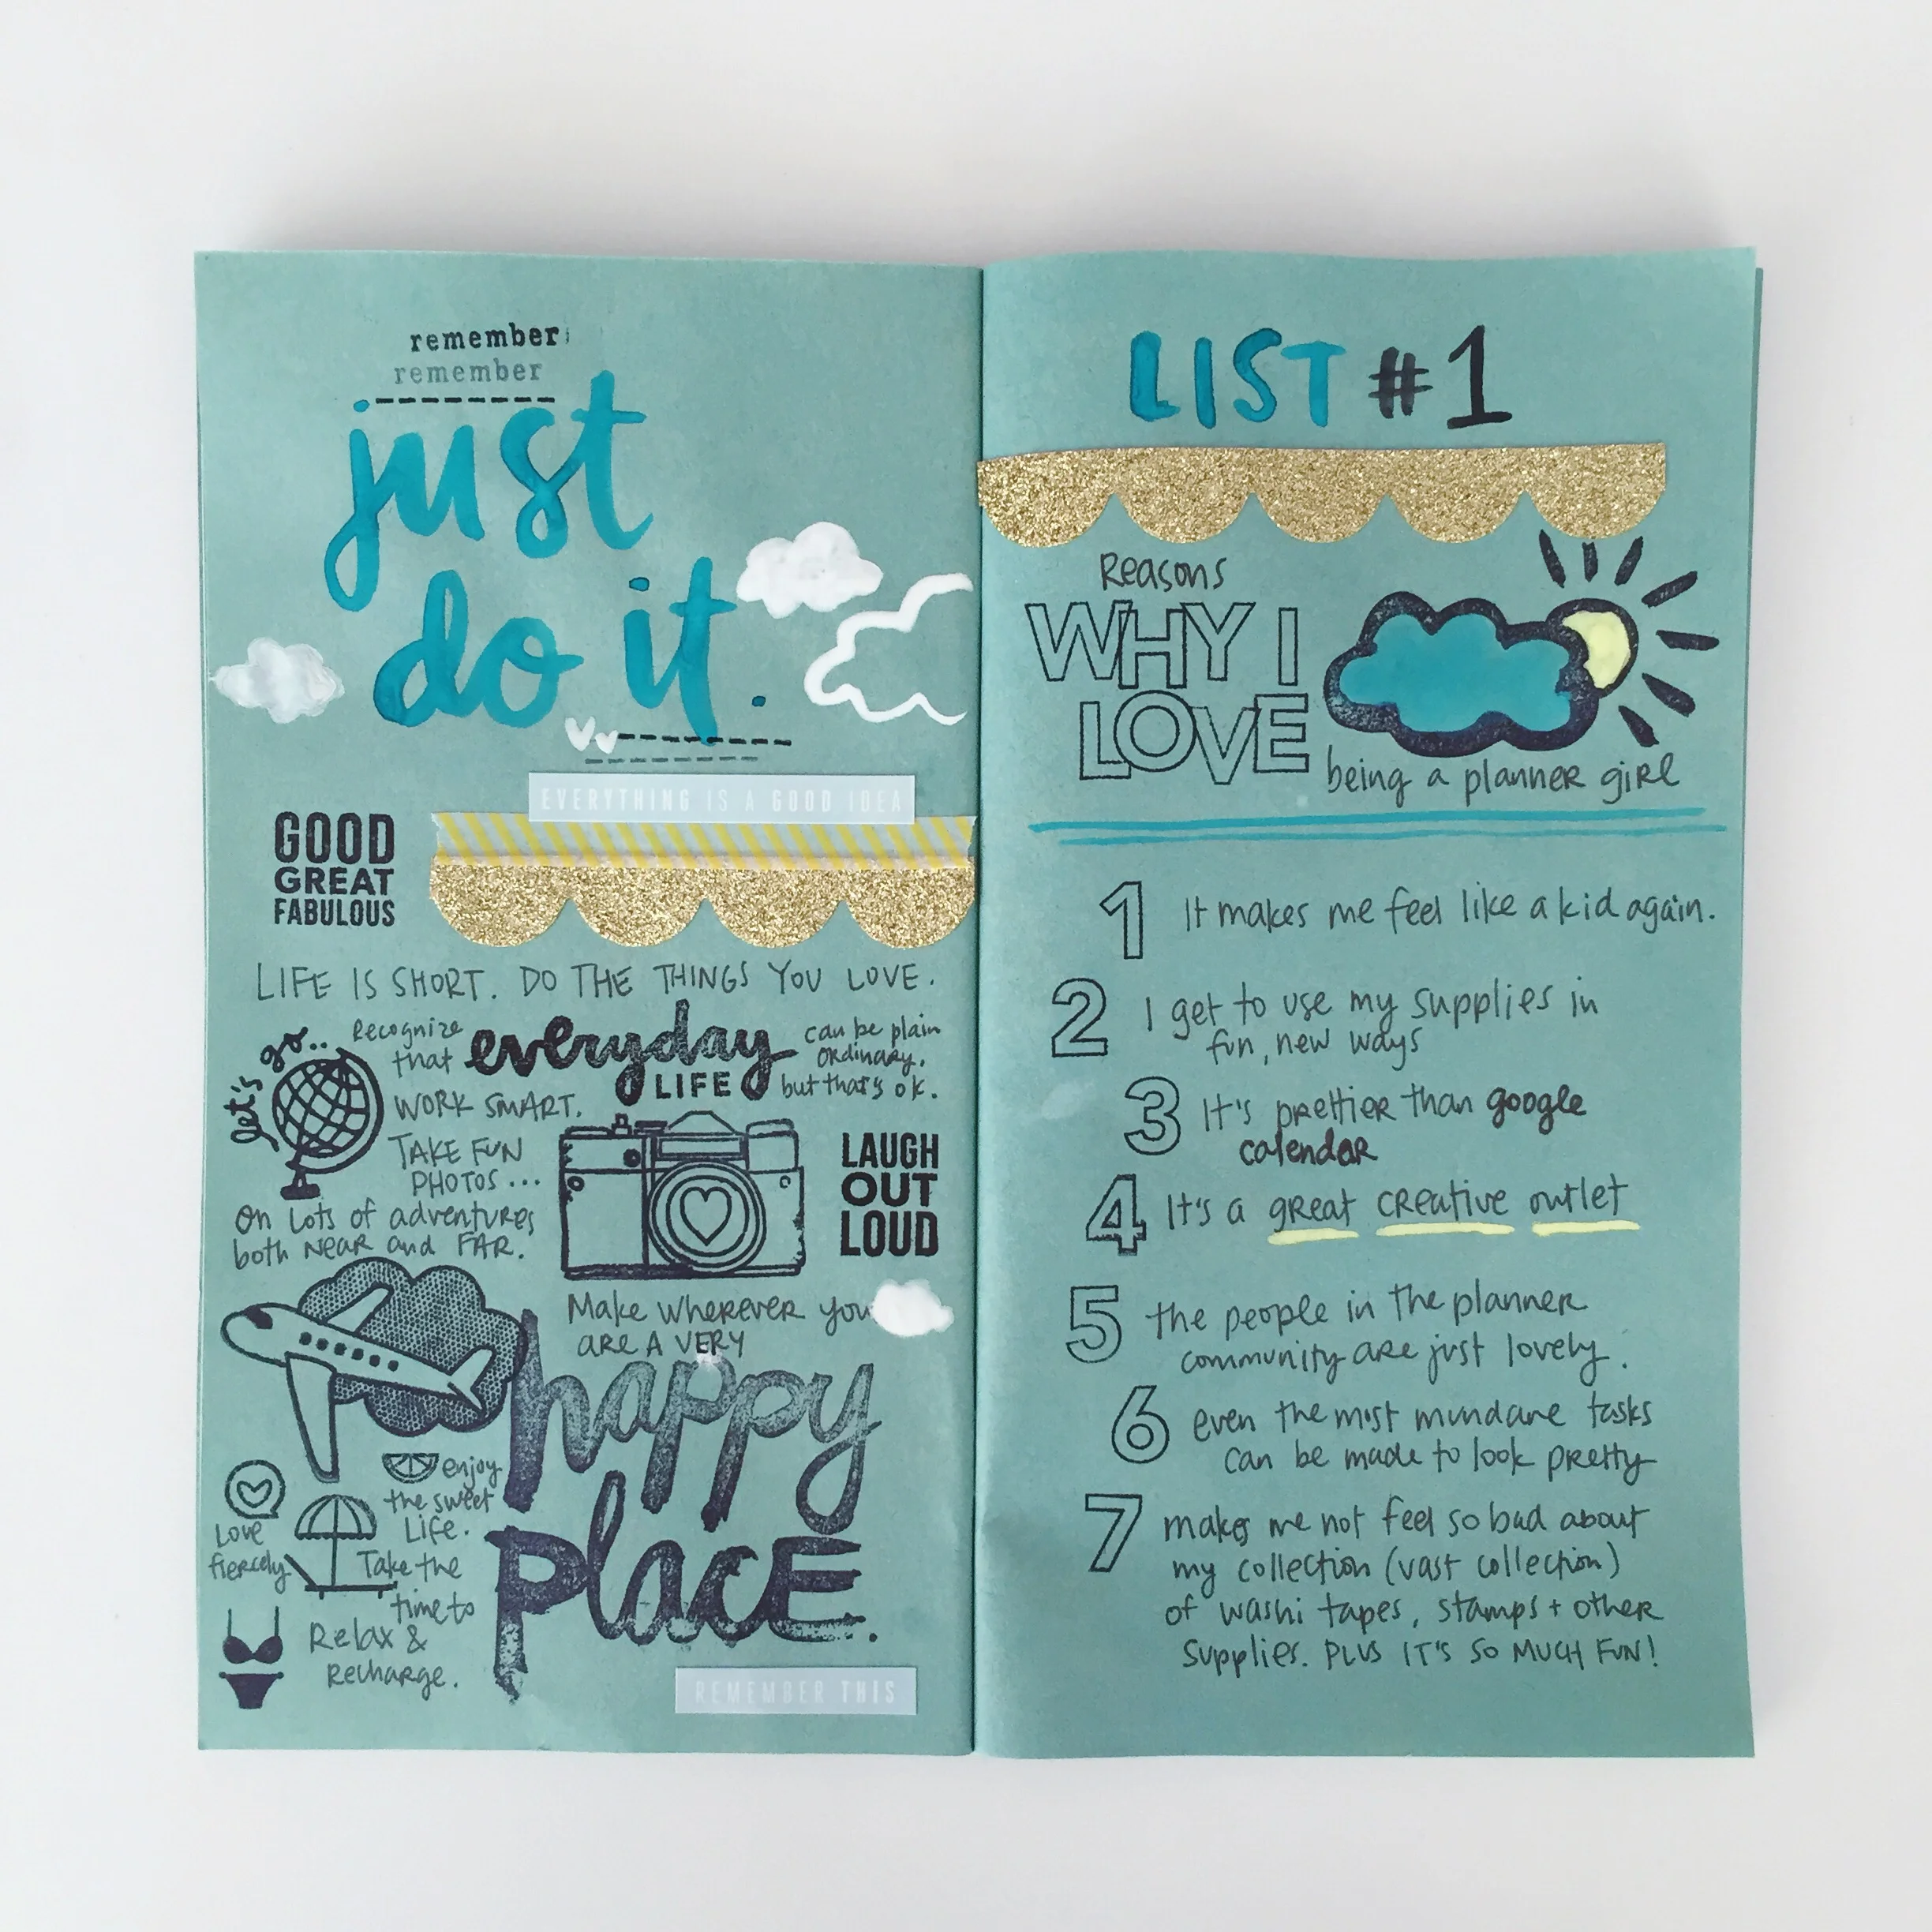 remember
remember
just
do it.
EVERYTHING IS A GOOD IDEA
GOOD
GREAT
FABULOUS
LIFE IS SHORT. DO THE THINGS YOU LOVE.
let's go..
Recognize
that everyday
LIFE
can be plain
ordinary.
but that's ok.
WORK SMART.
TAKE FUN
PHOTOS...
On lots of adventures
both near and FAR.
LAUGH
OUT
LOUD
Make wherever you
are A VERY
happy
place.
enjoy
the sweet
Life.
Love
fiercely
Take the
time to
Relax &
Recharge.
REMEMBER THIS
LIST #1
Reasons
WHY I
LOVE
being a planner girl
1 It makes me feel like a kid again.
2 I get to use my supplies in
fun, new ways
3 It's prettier than google
calendar
4 It's a great creative outlet
5 the people in the planner
community are just lovely.
6 even the most mundane tasks
can be made to look pretty
7 makes me not feel so bad about
my collection (vast collection)
of washi tapes, stamps + other
supplies. PLUS IT'S SO MUCH FUN!